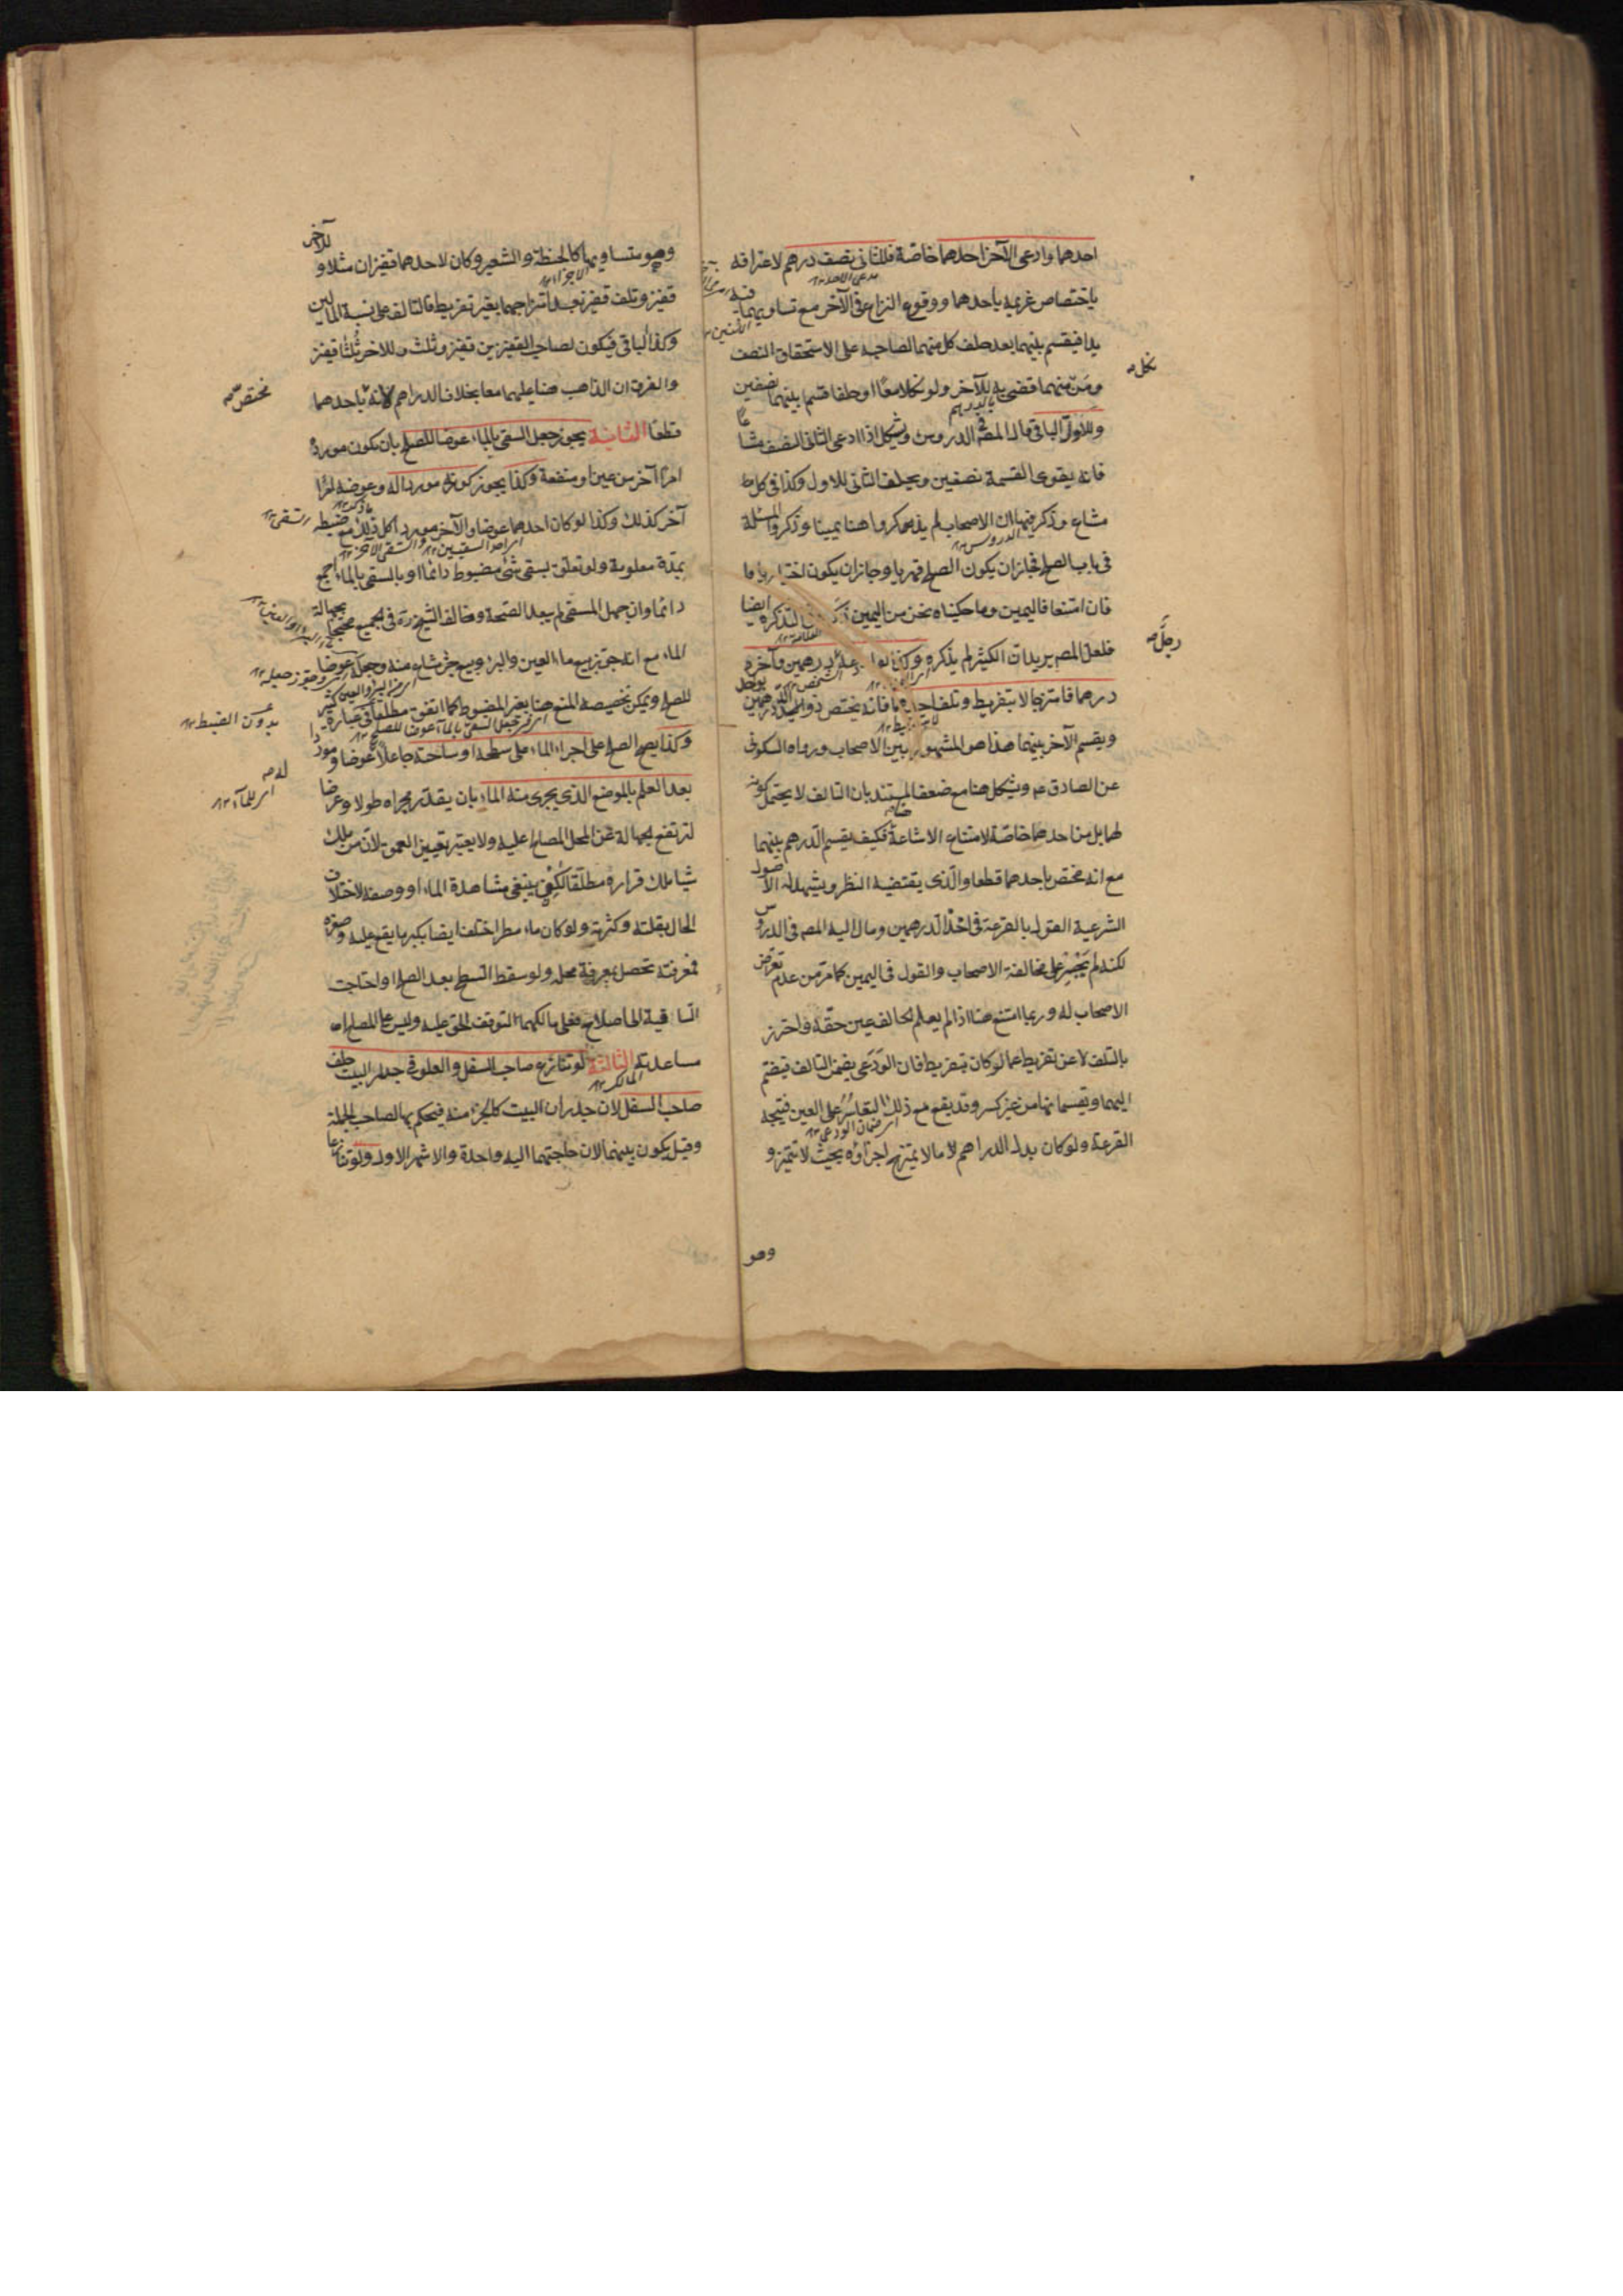 احدهما وادعى الآخر احدهما خاصة فللثانى نصف درهم لاعترافه
باختصاص غريمه باحدهما ووقوع النزاع فى الآخر مع تساويهما فيه
يدا فيقسم بينهما بعد حلف كل منهما لصاحبه على الاستحقاق النصف
ومن منهما قضى به للآخر ولو نكلا معا او حلفا قسم بينهما نصفين
وللاول الباقى قال المصه فى الدروس ويشكل اذا ادعى الثانى النصف مشاعا
فانه يقوى القسمة نصفين ويحلف الثانى للاول وكذا فى كل
مشاع وذكر فيها ان الاصحاب لم يذكروا هنا يمينا وذكروا المسئلة
فى باب الصلح فجاز ان يكون الصلح قهريا وجاز ان يكون اختياريا
فان امتنعا فاليمين وما حكيناه نحن من اليمين ذكره فى التذكرة ايضا
فلعل المصه يريد ان الكثير لم يذكره وكذا لو اودعه رجل درهمين وآخر
درهما فامتزجا لا بتفريط وتلف احدهما فانه يختص ذو الدرهمين بواحد
ويقسم الآخر بينهما هذا هو المشهور بين الاصحاب ورواه السكونى
عن الصادق عه ويشكل هنا مع ضعف المستند بان التالف لا يحتمل كونه
لهما بل من احدهما خاصة لامتناع الاشاعة هنا فكيف يقسم الدرهم بينهما
مع انه مختص باحدهما قطعا والذى يقتضيه النظر ويشهد له الاصول
الشرعية القول بالقرعة فى احد الدرهمين ومال اليه المصه فى الدروس
لكنه لم يجسر على مخالفة الاصحاب والقول فى اليمين كما مر من عدم تعرض
الاصحاب له وربما امتنع هنا اذا لم يعلم الحالف عين حقه واحترز
بالتلف لا عن تفريط عما لو كان بتفريط فان الودعى يضمن التالف فيضم
اليهما ويقسمانها من غير كسر وقد يقع مع ذلك التعاسر على العين فيتجه
القرعة ولو كان بدل الدراهم مالا يمتزج اجزاؤه بحيث لا تتميز و
وهو
نكل صه
رجل صه
وهو متساويهما كالحنطة والشعير وكان لاحدهما قفيزان مثلا وللآخر
قفيز وتلف قفيز بعد امتزاجهما بغير تفريط فالتالف على نسبة المالين
وكذا الباقى فيكون لصاحب القفيزين قفيز وثلث وللآخر ثلثا قفيز
والفرق ان الذاهب هنا عليهما معا بخلاف الدراهم لانه باحدهما
قطعا الثانية يجوز جعل السقى بالماء عوضا للصلح بان يكون مورده
امرا آخر من عين او منفعة وكذا يجوز كونه موردا له وعوضه امرا
آخر كذلك وكذا لو كان احدهما عوضا والآخر موردا كل ذلك مع ضبطه
بمدة معلومة ولو تعلق بسقى شئ مضبوط دائما او بالسقى بالماء اجمع
دائما وان جهل المسقى لم يبعد الصحة وخالف الشيخ ره فى الجميع محتجا بجهالة
الماء مع انه جوز بيع ماء العين والبئر وبيع جزء مشاع منه وجعله عوضا
للصلح ويمكن تخصيصه المنع هنا بغير المضبوط كما اتفق مطلقا فى عبارة كثير
وكذا يصح الصلح على اجراء الماء على سطحه او ساحته جاعلا له عوضا وموردا
بعد العلم بالموضع الذى يجرى منه الماء بان يقدر مجراه طولا وعرضا
لترتفع الجهالة عن المحل المصالح عليه ولا يعتبر تعيين العمق لان من ملك
شيئا ملك قراره مطلقا لكن ينبغى مشاهدة الماء او وصفه لاختلاف
الحال بقلته وكثرته ولو كان ماء مطر اختلف ايضا بكبر ما يقع عليه وصغره
فمعرفته تحصل بمعرفة محله ولو سقط السطح بعد الصلح او احتاجت
الساقية الى اصلاح فعلى مالكهما لتوقف الحق عليه وليس على المصالح
مساعدته الثالثة لو تنازع صاحب السفل والعلو فى جدار البيت حلف
صاحب السفل لان جدران البيت كالجزء منه فيحكم بها لصاحب الجملة
وقيل يكون بينهما لان حاجتهما اليه واحدة والاشهر الاول ولو تنازعا
مختص صه
بدون الضبط ١٢
له صه
اى للماء ١٢